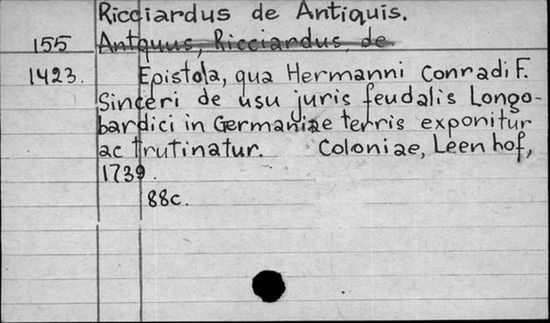 Ricciardus de Antiquis.
155 Antquus, Ricciardus, de
1423. Epistola, qua Hermanni Conradi F.
Sinceri de usu juris feudalis Longo-
bardici in Germaniae terris exponitur
ac trutinatur. Coloniae, Leenhof,
1739.
88c.